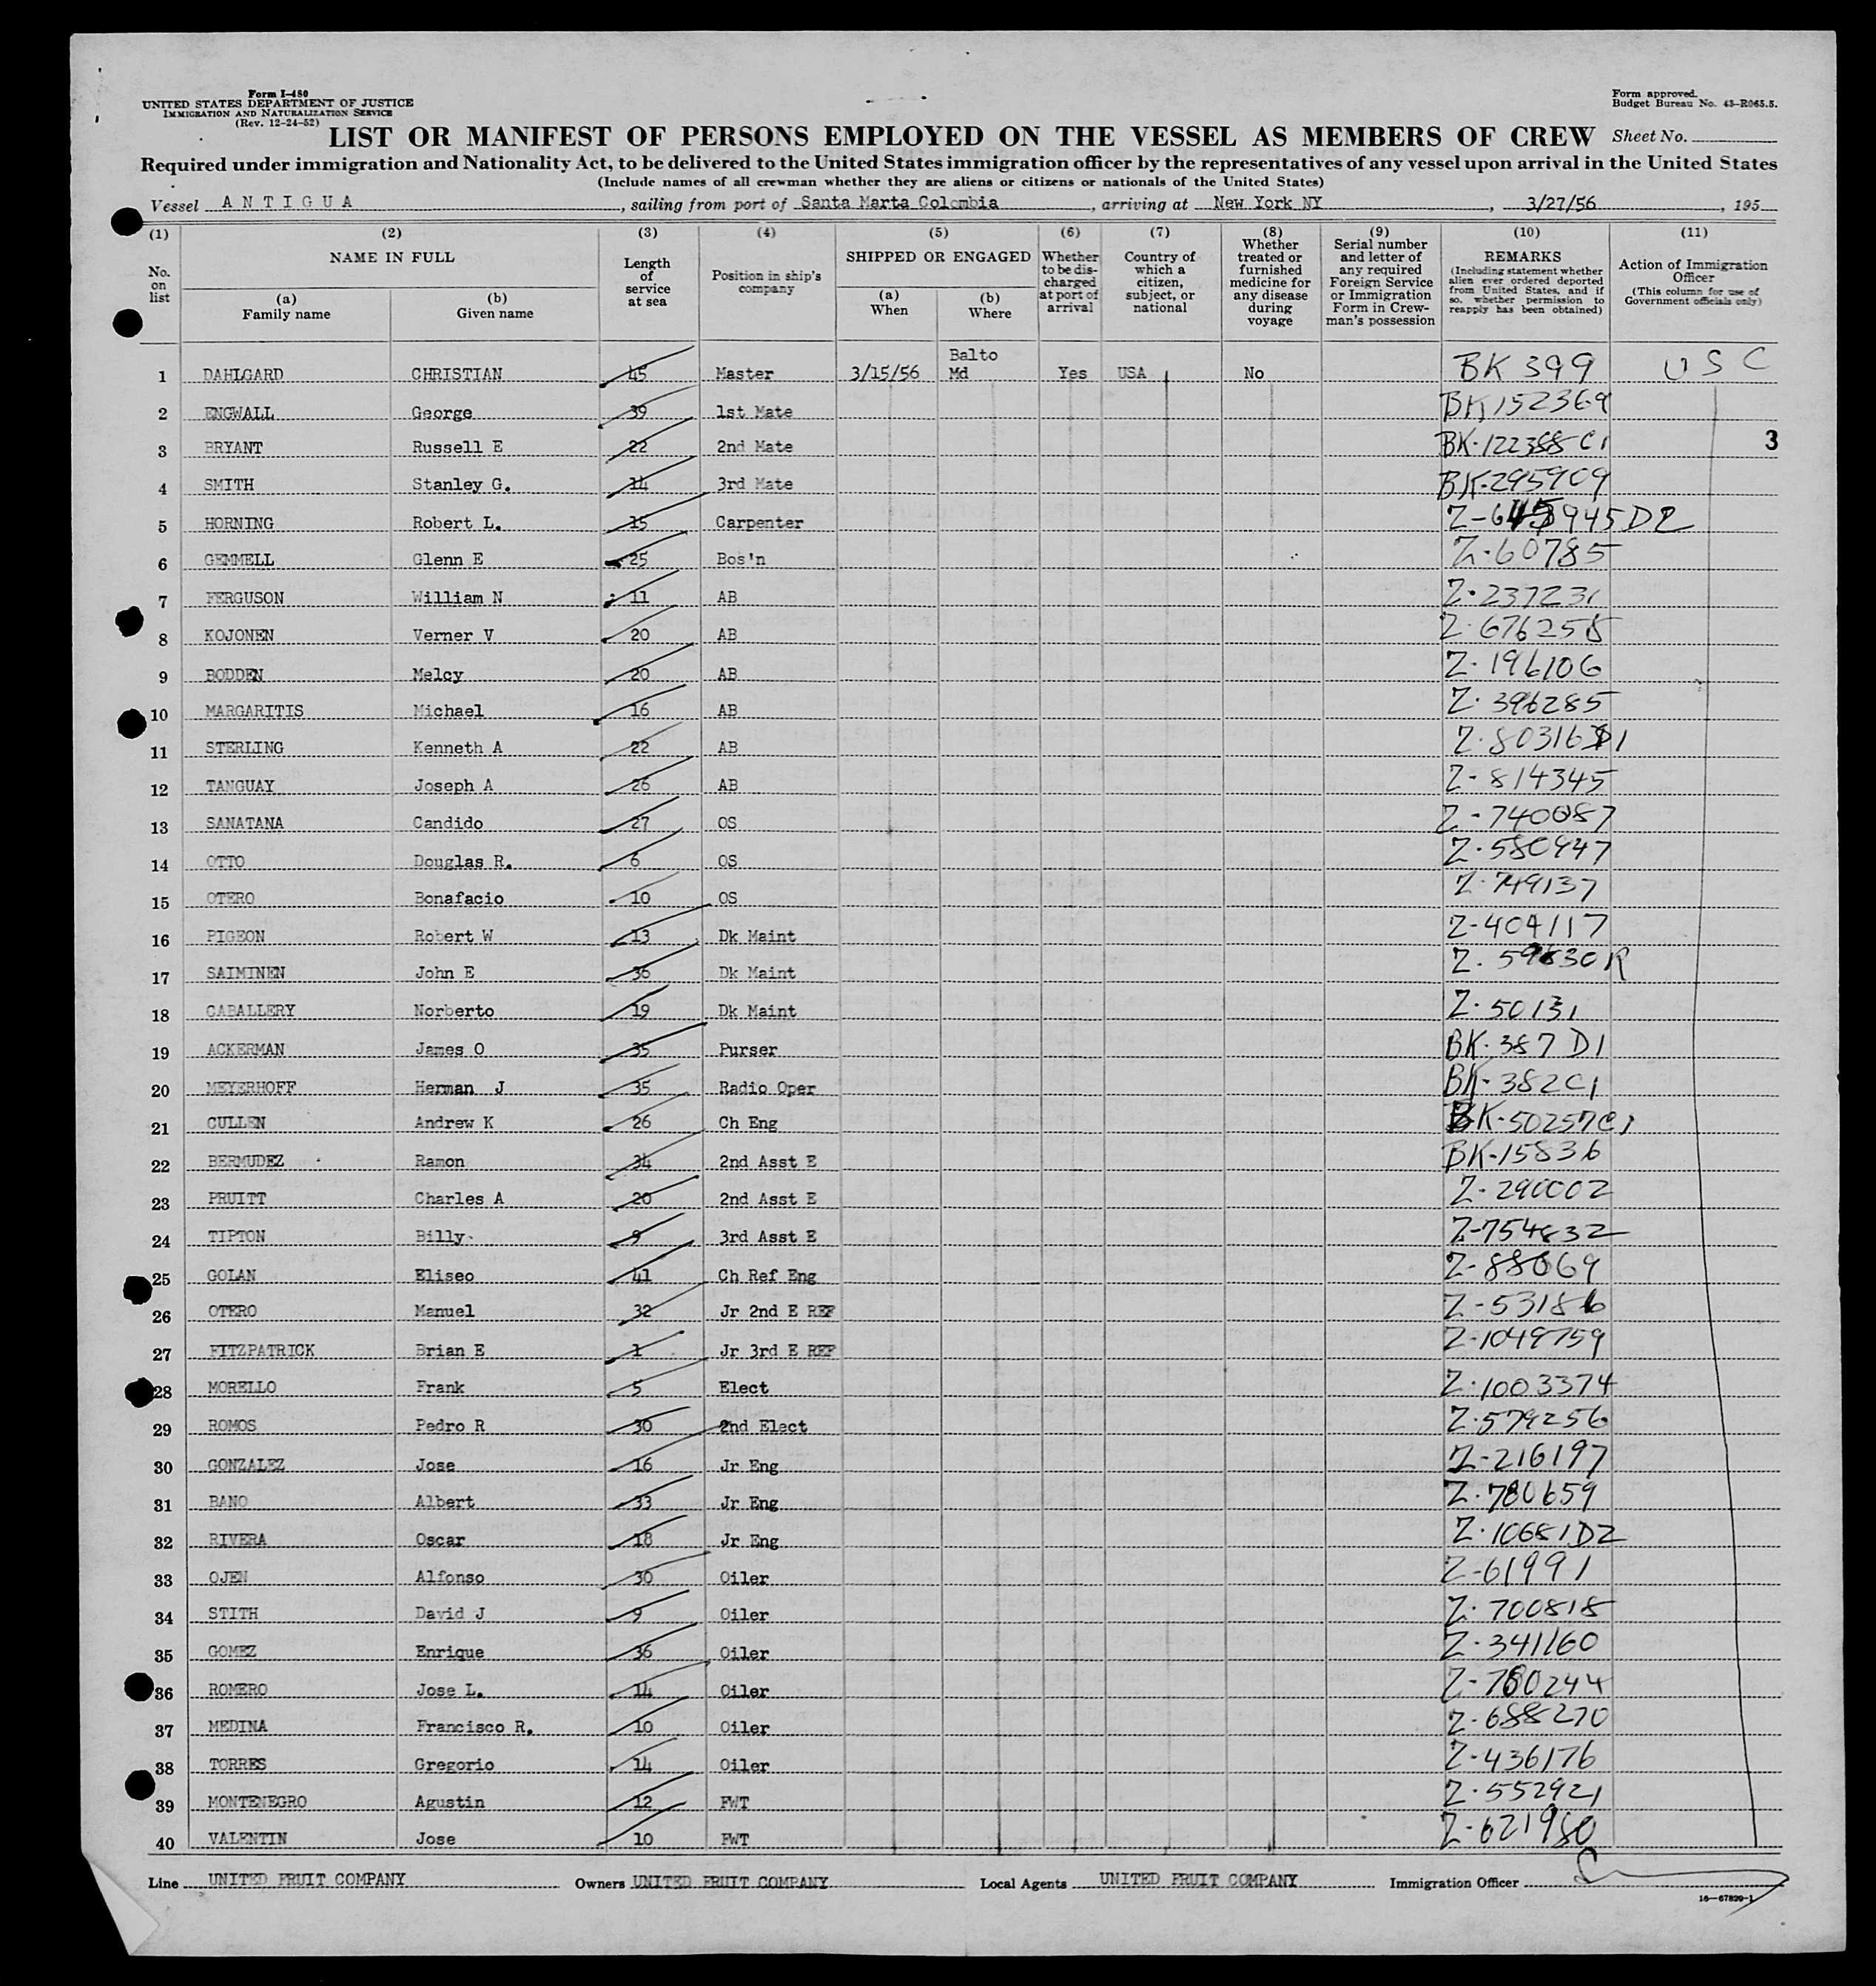 Form I-480
UNITED STATES DEPARTMENT OF JUSTICE
IMMIGRATION AND NATURALIZATION SERVICE
(Rev. 12-24-52)
Form approved.
Budget Bureau No. 43-R065.5.
LIST OR MANIFEST OF PERSONS EMPLOYED ON THE VESSEL AS MEMBERS OF CREW Sheet No.
Required under immigration and Nationality Act, to be delivered to the United States immigration officer by the representatives of any vessel upon arrival in the United States
(Include names of all crewman whether they are aliens or citizens or nationals of the United States)
Vessel ANTIGUA, sailing from port of Santa Marta Colombia, arriving at New York NY, 3/27/56, 195
(1) No. on list
(2) NAME IN FULL
(a) Family name
(b) Given name
(3) Length of service at sea
(4) Position in ship's company
(5) SHIPPED OR ENGAGED
(a) When
(b) Where
(6) Whether to be discharged at port of arrival
(7) Country of which a citizen, subject, or national
(8) Whether treated or furnished medicine for any disease during voyage
(9) Serial number and letter of any required Foreign Service or Immigration Form in Crewman's possession
(10) REMARKS (Including statement whether alien ever ordered deported from United States, and if so, whether permission to reapply has been obtained)
(11) Action of Immigration Officer (This column for use of Government officials only)
1 DAHLGARD CHRISTIAN 45 Master 3/15/56 Balto Md Yes USA No BK 399 USC
2 ENGWALL George 39 1st Mate BK152369
3 BRYANT Russell E 22 2nd Mate BK-122388 C1 3
4 SMITH Stanley G. 14 3rd Mate BK-295909
5 HORNING Robert L. 15 Carpenter
6 GEMMELL Glenn E 25 Bos'n Z-60785
7 FERGUSON William N 11 AB Z-237231
8 KOJONEN Verner V 20 AB Z-676258
9 BODDEN Melcy 20 AB Z-196106
10 MARGARITIS Michael 16 AB Z-396285
11 STERLING Kenneth A 22 AB
12 TANGUAY Joseph A 26 AB Z-814345
13 SANATANA Candido 27 OS Z-740087
14 OTTO Douglas R. 6 OS Z-580947
15 OTERO Bonafacio 10 OS Z-749137
16 PIGEON Robert W 13 Dk Maint Z-404117
17 SAIMINEN John E 36 Dk Maint
18 CABALLERY Norberto 19 Dk Maint Z-50131
19 ACKERMAN James O 35 Purser BK-387 D1
20 MEYERHOFF Herman J 35 Radio Oper BK-382C1
21 CULLEN Andrew K 26 Ch Eng BK-50257C1
22 BERMUDEZ Ramon 34 2nd Asst E BK-15836
23 PRUITT Charles A 20 2nd Asst E Z-290002
24 TIPTON Billy 9 3rd Asst E Z-754832
25 GOLAN Eliseo 41 Ch Ref Eng Z-88069
26 OTERO Manuel 32 Jr 2nd E REF Z-53186
27 FITZPATRICK Brian E 1 Jr 3rd E REF Z-1049759
28 MORELLO Frank 5 Elect Z-1003374
29 ROMOS Pedro R 30 2nd Elect Z-579256
30 GONZALEZ Jose 16 Jr Eng Z-216197
31 BANO Albert 33 Jr Eng Z-780659
32 RIVERA Oscar 18 Jr Eng Z-10681D2
33 OJEN Alfonso 30 Oiler Z-61991
34 STITH David J 9 Oiler Z-700818
35 GOMEZ Enrique 36 Oiler Z-341160
36 ROMERO Jose L. 14 Oiler Z-780244
37 MEDINA Francisco R. 10 Oiler Z-688270
38 TORRES Gregorio 14 Oiler Z-436176
39 MONTENEGRO Agustin 12 FWT Z-552921
40 VALENTIN Jose 10 FWT Z-621980
Line UNITED FRUIT COMPANY Owners UNITED FRUIT COMPANY Local Agents UNITED FRUIT COMPANY Immigration Officer
16-67829-1